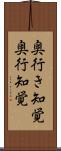 奥行き知覚
奥行知覚